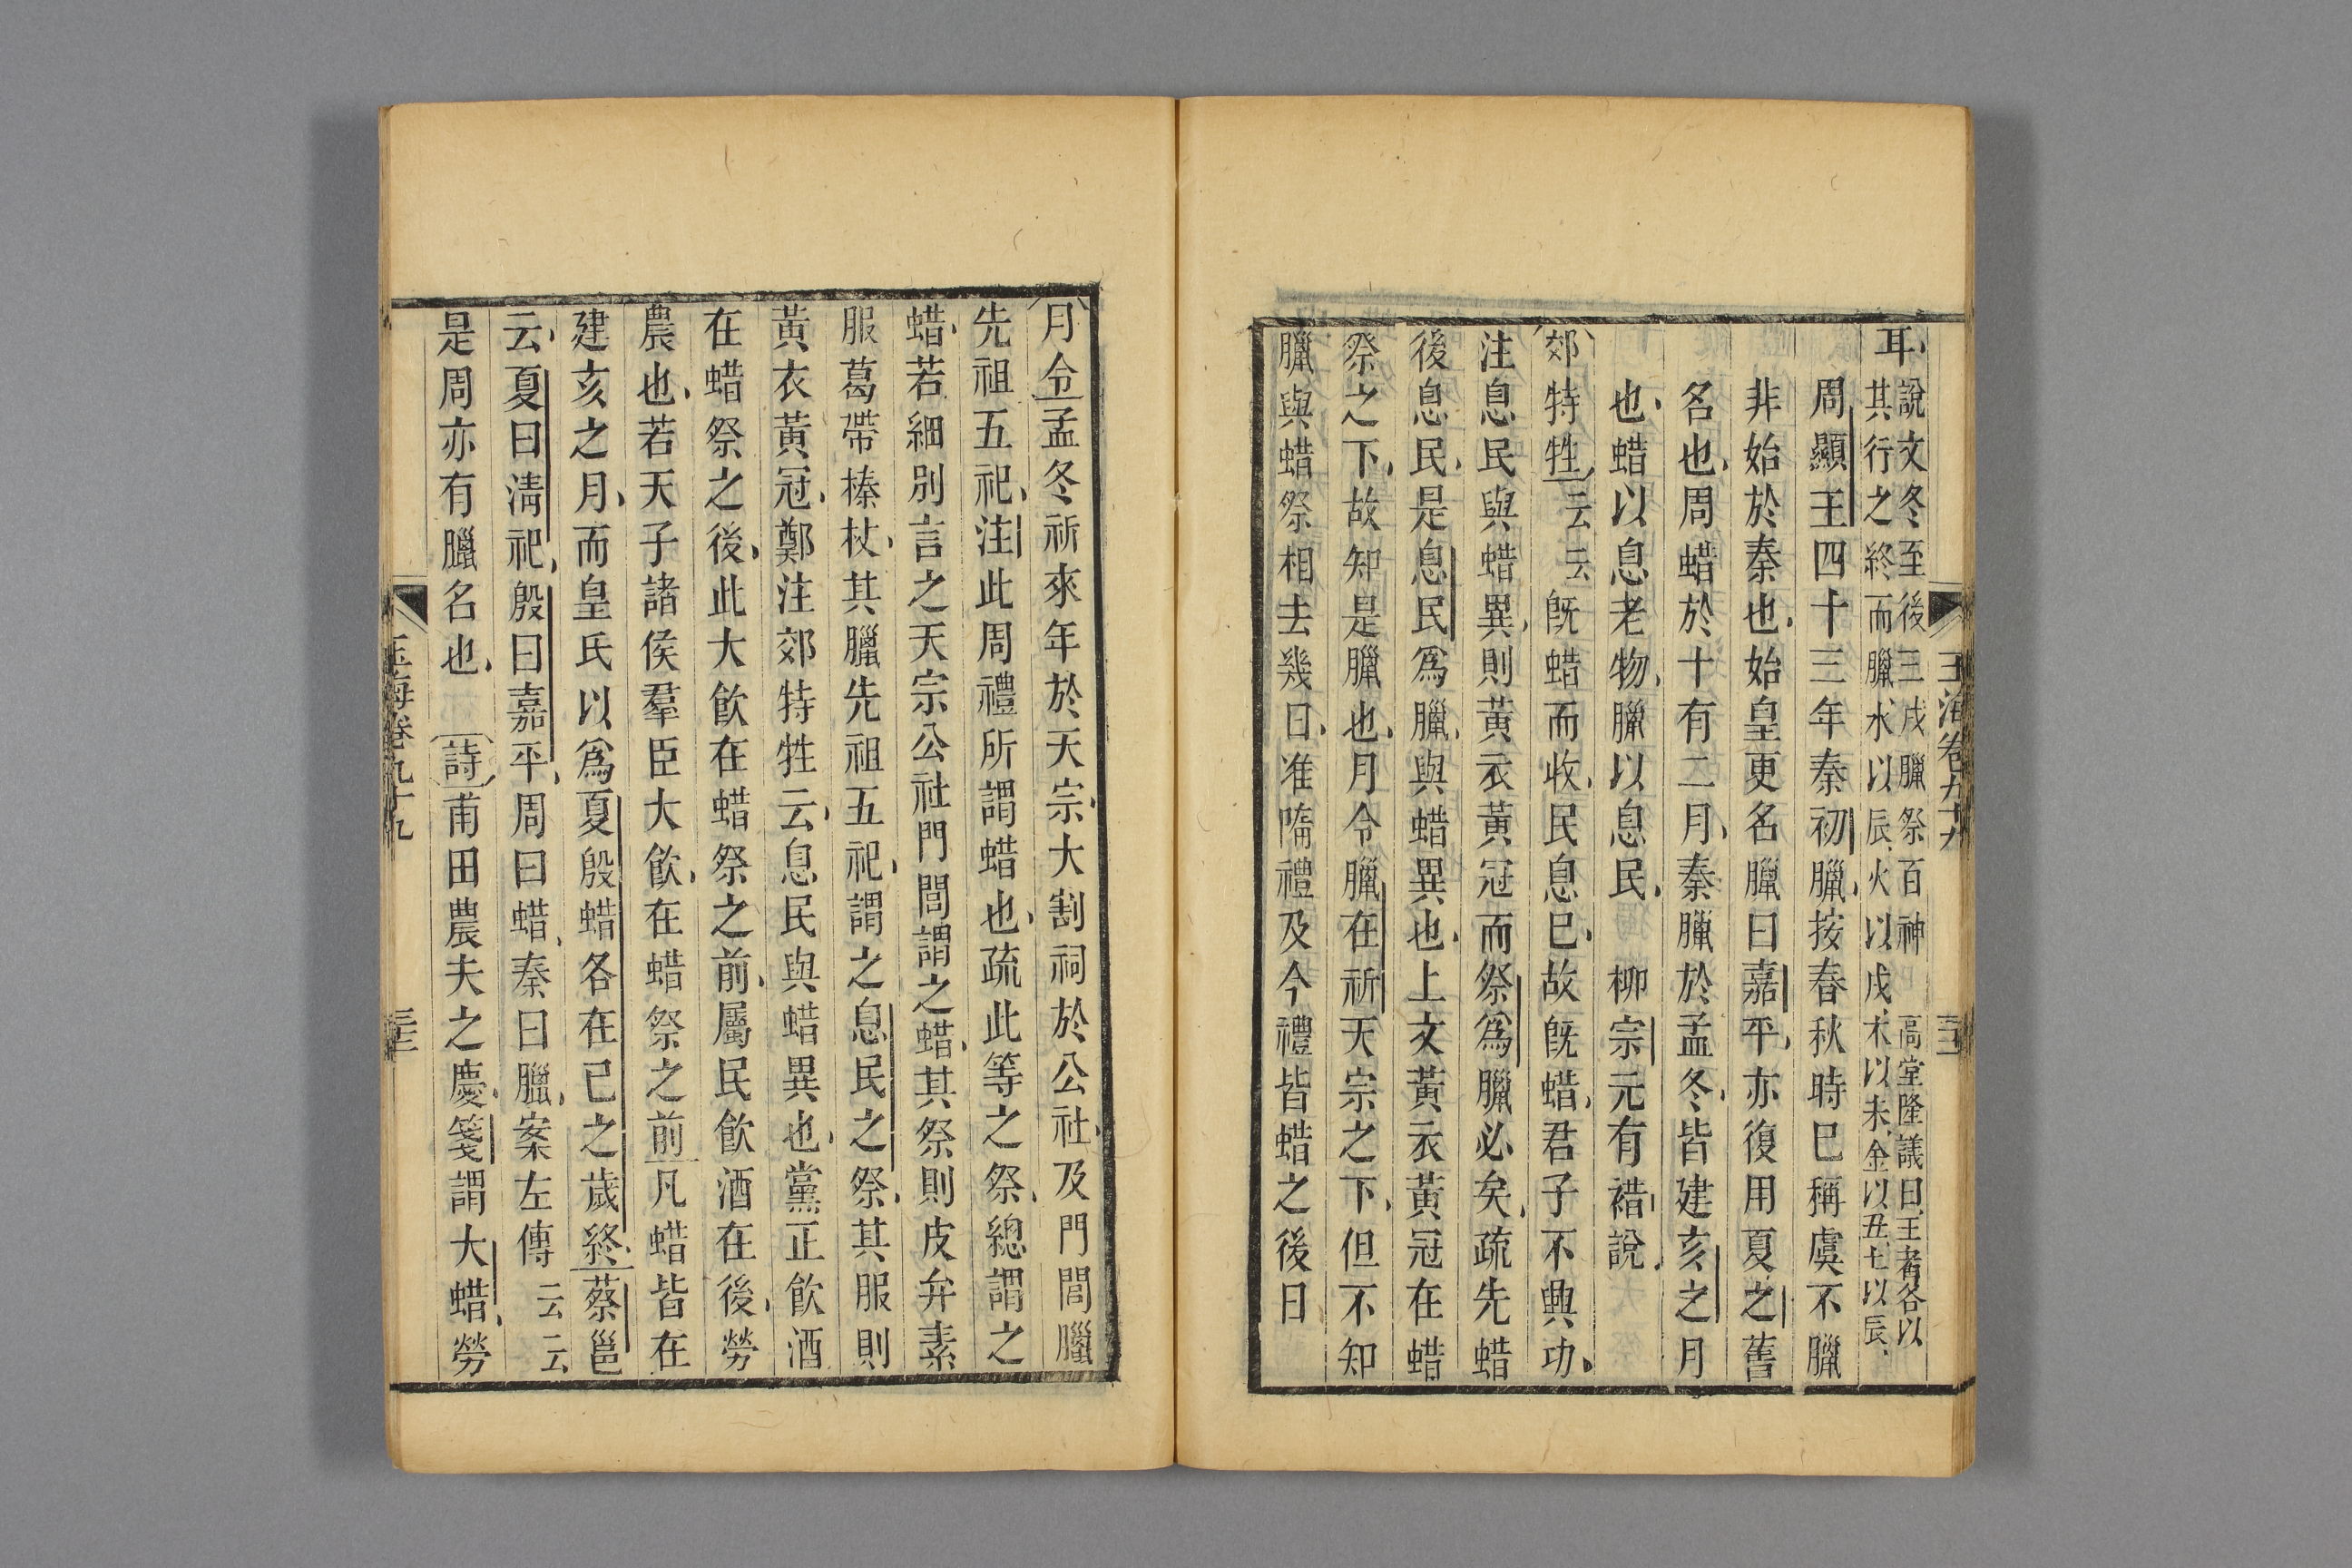 玉海卷九十九
耳說文冬至後三戌臘祭百神 高堂隆議曰王者各以
其行之終而臘水以辰火以戌木以未金以丑土以辰
周顯王四十三年秦初臘按春秋時已稱虞不臘
非始於秦也始皇更名臘曰嘉平亦復用夏之舊
名也周蜡於十有二月秦臘於孟冬皆建亥之月
也蜡以息老物臘以息民 柳宗元有䄍說
郊特牲云云旣蜡而收民息已故旣蜡君子不興功
注息民與蜡異則黃衣黃冠而祭爲臘必矣疏先蜡
後息民是息民爲臘與蜡異也上文黃衣黃冠在蜡
祭之下故知是臘也月令臘在祈天宗之下但不知
臘與蜡祭相去幾日准隋禮及今禮皆蜡之後日
月令孟冬祈來年於天宗大割祠於公社及門閭臘
先祖五祀注此周禮所謂蜡也疏此等之祭總謂之
蜡若細別言之天宗公社門閭謂之蜡其祭則皮弁素
服葛帶榛杖其臘先祖五祀謂之息民之祭其服則
黃衣黃冠鄭注郊特牲云息民與蜡異也黨正飮酒
在蜡祭之後此大飮在蜡祭之前屬民飮酒在後勞
農也若天子諸侯羣臣大飮在蜡祭之前凡蜡皆在
建亥之月而皇氏以爲夏殷蜡各在己之歲終蔡邕
云夏曰淸祀殷曰嘉平周曰蜡秦曰臘案左傳云云
是周亦有臘名也 詩甫田農夫之慶箋謂大蜡勞
玉海卷九十九